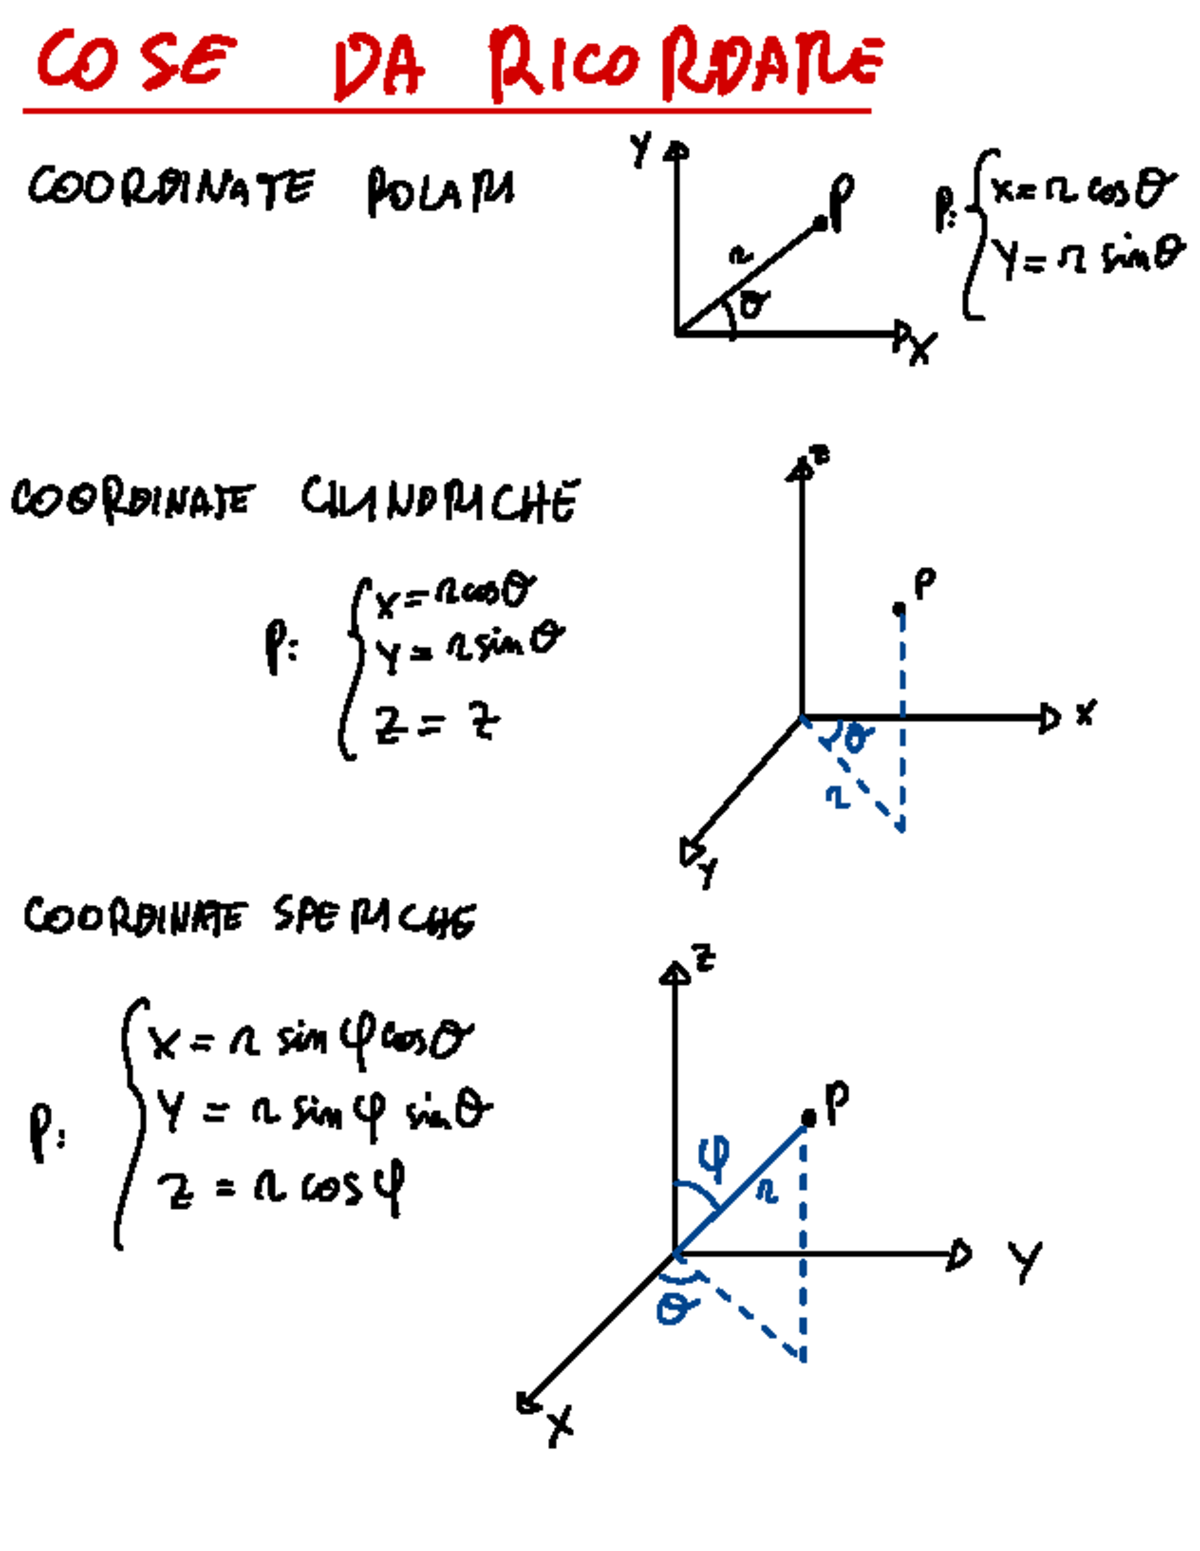 COSE DA RICORDARE
COORDINATE POLARI
Y
P
r
θ
X
P: { x = r cos θ
Y = r sin θ
COORDINATE CILINDRICHE
P: { x = r cos θ
Y = r sin θ
Z = z
z
P
x
θ
r
Y
COORDINATE SFERICHE
P: { X = r sin φ cos θ
Y = r sin φ sin θ
Z = r cos φ
Z
P
φ
r
Y
θ
X